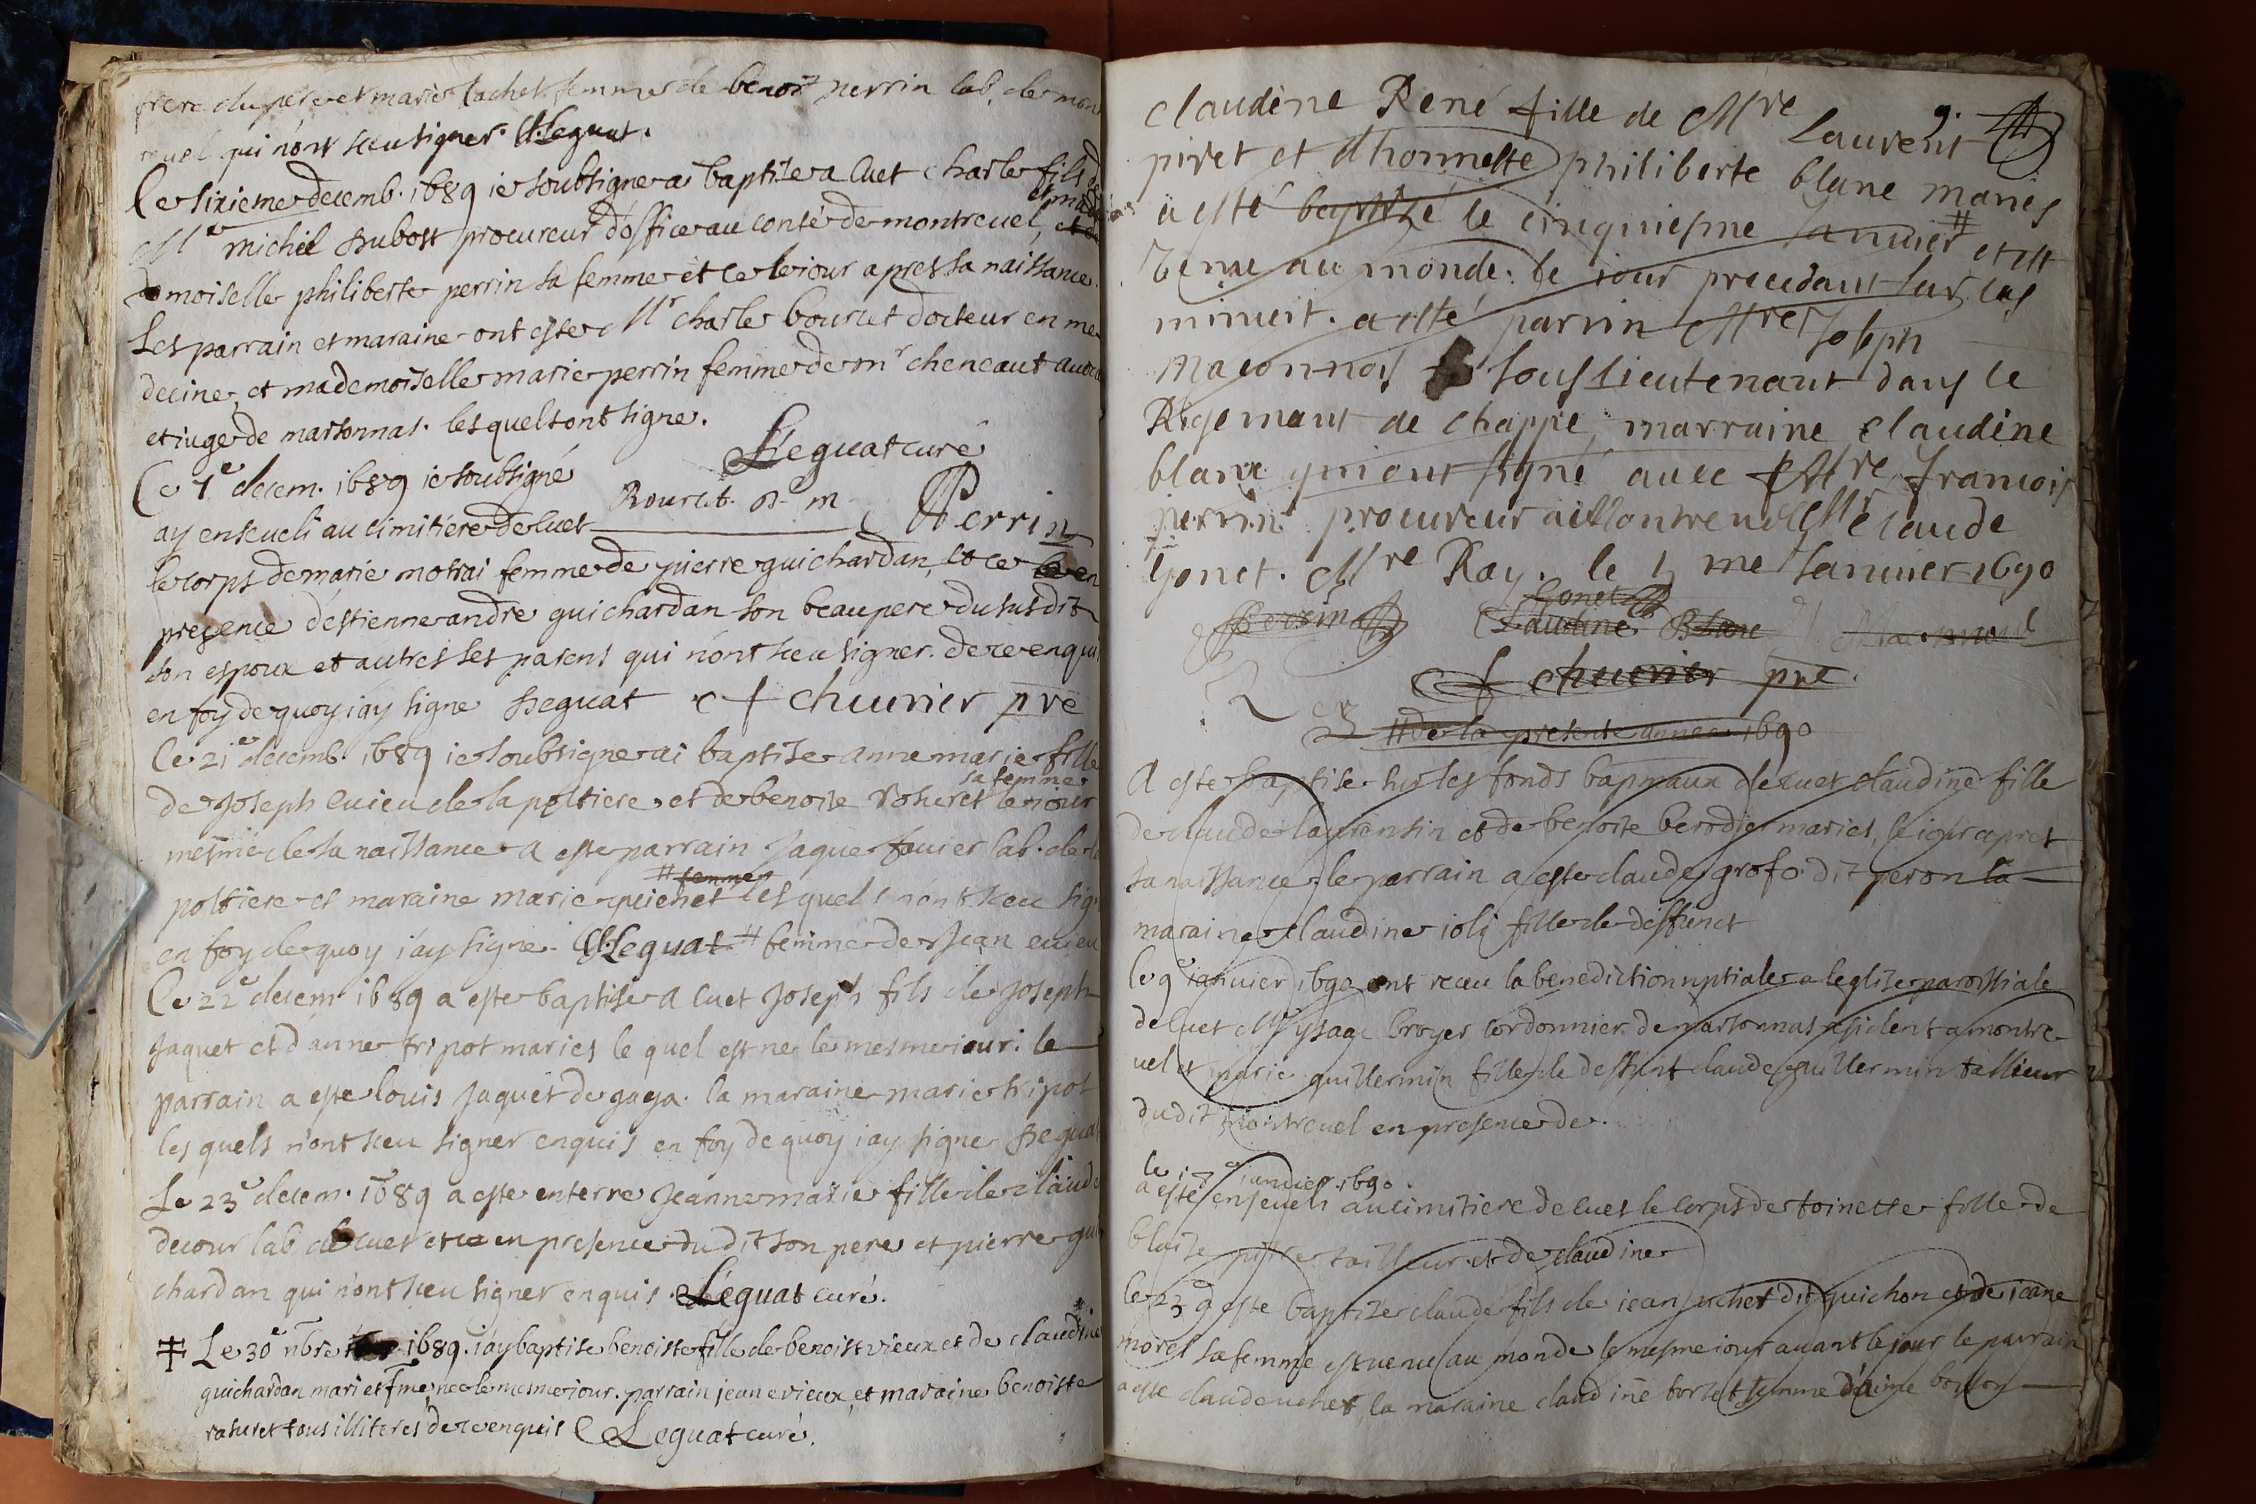 frere du père et marie lachet femme de benoit perrin lab. de mont
revel qui n'ont sceu signer. Leguat.
Ce sixieme decemb. 1689 ie soubsigne ai baptize a Cuet charle fils de
Mre michel Dubost procureur d'office au conté de montrevel, et de
demoiselle philiberte perrin sa femme et ce le iour apres sa naissance.
Les parrain et maraine ont este Mr charle bourcet docteur en me
decine, et mademoiselle marie perrin femme de mr cheneaut avocat
et iuge de marsonnas. lesquels ont signe.
Leguat curé
Ce 7e decem. 1689 ie soubsigné
Perrin
ay enseveli au cimitiere de Cuet
le corps de marie motrai femme de pierre guichardan, et ce en
presence d'estienne andre guichardan son beaupere du susdit
son espoux et autres ses parens qui n'ont sceu signer. de ce enquis
en foy de quoy i'ay signe Leguat chuurier pre
Ce 21e decemb. 1689 ie soubsigne ai baptize anne marie fille
sa femme
de Joseph cuieu de la poltiere, et de benoite voturet le iour
mesme de sa naissance a este parrain Jaque fouier lab. de la
# femme
poltiere et maraine marie guichet lesquels n'ont sceu sign
en foy de quoy i'ay signe. Leguat # femme de Jean
Ce 22e decem. 1689 a este baptise a Cuet Joseph fils de Joseph
Jaquet et d'anne tripot maries le quel est ne le mesme iour. le
parrain a este louis Jaquet de gaga. la maraine marie tripot
les quels n'ont sceu signer enquis en foy de quoy i'ay signe Leguat
Le 23e decem. 1689 a este enterre Jeanne marie fille de claude
decour lab de Cuet et ce en presence du dit son pere et pierre gui
chardan qui n'ont sceu signer enquis Leguat curé.
‡ Le 30e nbre 1689. i'ay baptise benoiste fille de benoist vieux et de claudine
guichardan mari et fme nee le mesme iour. parrain jean evieux, et maraine benoiste
raturet tous illiteres de ce enquis Leguat curé.
9.
claudine René fille de Mre Laurent
piret et d'honneste philiberte blanc mariés
a esté baptizé le cinquiesme Januier # et est
Venue au monde. le iour precedant sur les
minuit. a esté parrin Mre Joseph
Maconnois souslieutenant dans le
Regemant de chappe, marraine claudine
blanc qui ont signé avec Mre Francois
perrin procureur a Montrevel Mr claude
Gonet. Mre Ray. le 5 me Januier 1690
Gonet
Perrin Claudine Blanc
chuurier pre.
# de la presente annee 1690
A este baptise sur les fonds baptismaux de cuet claudine fille
de claude laurensin et de benoite berodier maries, le iour apres
sa naissance. le parrain a este claude grofo dit peron la
maraine claudine ioli fille de deffunct
le 9e ianuier 1690 ont receu la benediction nuptiale a leglise paroissiale
de Cuet Mr ysaac broyer cordonnier de marsonnas residant a montre
vel et marie guillermin fille de deffunt claude guillermin tallieur
du dit montrevel en presence de.
le 17e ianuier 1690.
a este enseveli au cimitiere de Cuet le corps de toinette fille de
blaise pitre tailleur et de claudine
le 23 a este baptize claude fils de iean uchet dit guichon et de ieane
morel sa femme est venu au monde le mesme iour avant le iour le parrain
a este claude uchet, la maraine claudine borset femme d'aime